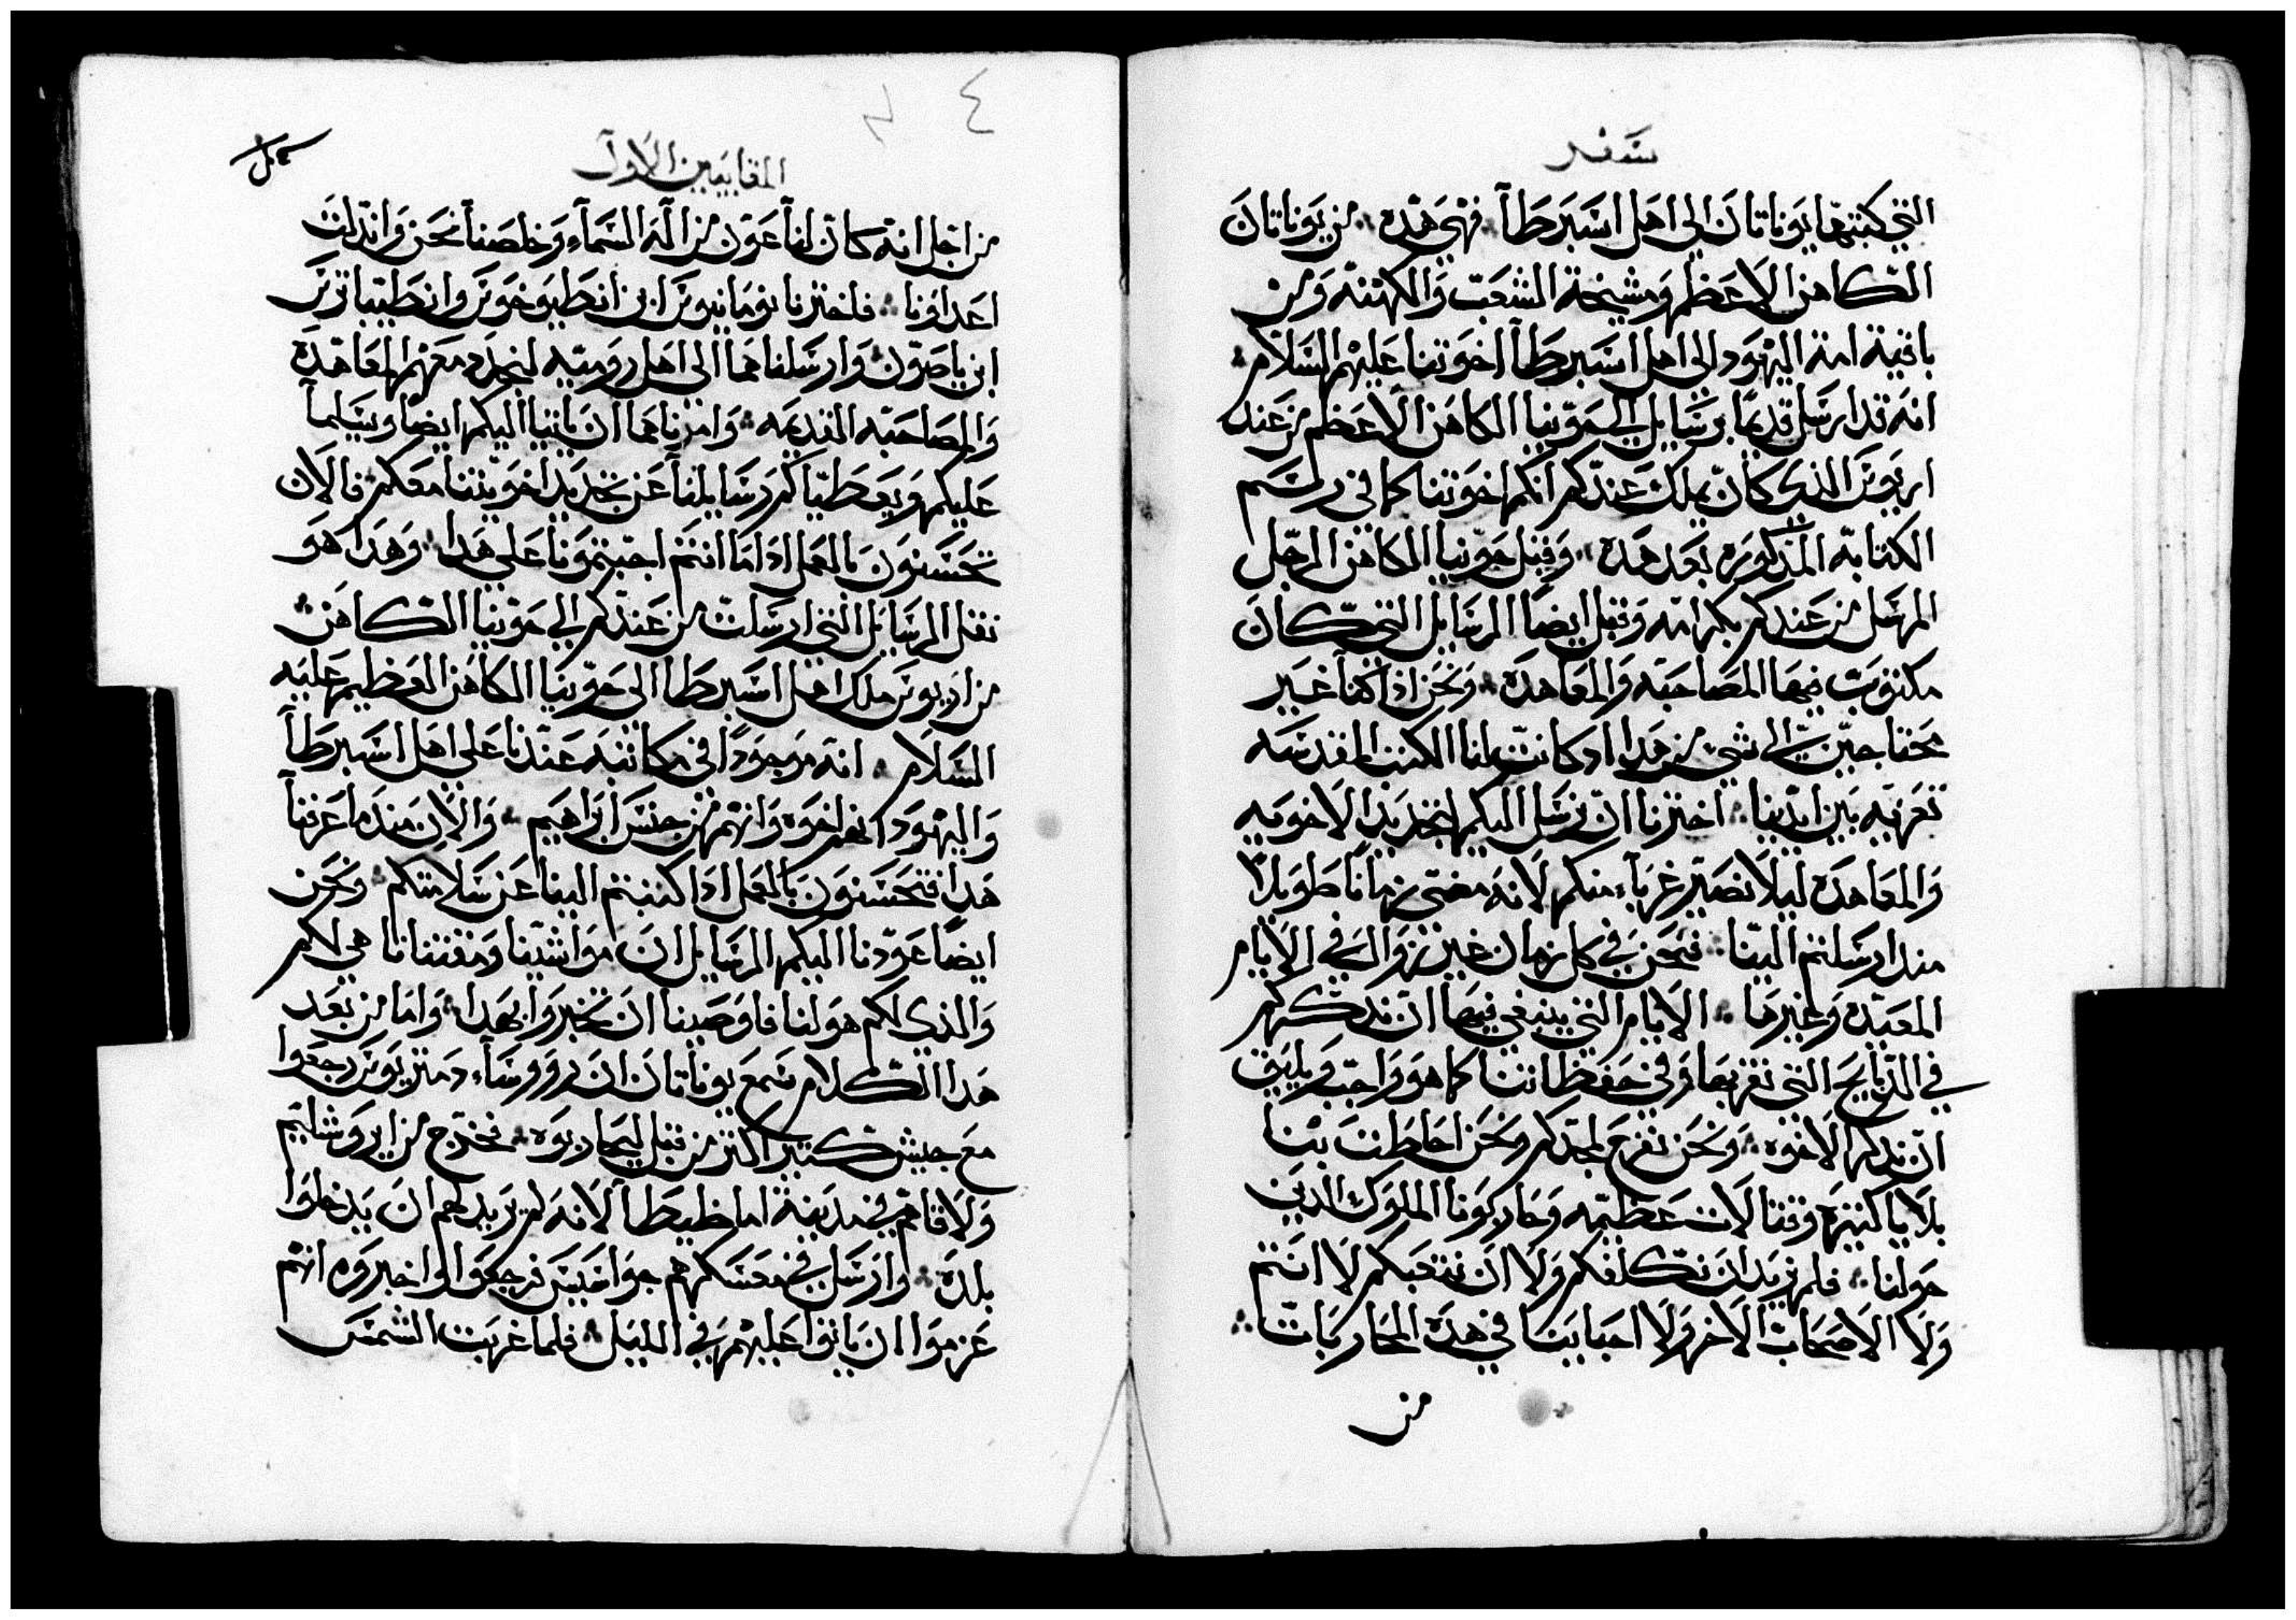 سفر
التي كتبتها يوناتان الي اهل اسبرطا فهي هده من يوناتان
الكاهن الاعظم ومشيخة الشعب والكهنه ومن
باقية امة اليهود الي اهل اسبرطا اخوتنا عليهم السلام
انه قد ارسل قديما برسايل الي حوٓنيا الكاهن الاعظم من عند
اريوس الذي كان يملك عندكم انكم اخوتنا كما في رسم
الكتابه المذكوره بعد هده وقبل حونيا الكاهن الرجل
المرسل من عندكم بكرامه وقبل ايضا الرسايل التي كان
مكتوب فيها المصاحبه والمعاهدة ونحن اذ كنا غير
محتاجين الي شي من هدا اد كانت لنا الكتب المقدسه
تعزيه بين ايدينا اخترنا ان نرسل اليكم لنجديد الاخويه
والمعاهدة ليلا نصير غرباء منكم لانه مضي زمانا طويلا
مند ارسلتم الينا فنحن في كل زمان غير زوال في الايام
المعيده وغيرها الايام التي ينبغي فيها ان ندكركم
في الدبايح التي نقربها وفي حفظاتنا كما هو واجب ويليق
ان ندكر الاخوه ونحن نفرح لمجدكم ونحن احاطت بنا
بلايا كثيرة وقتالات عظيمه وحاربونا الملوك الدين
حولنا فلم نريد ان نكلفكم ولا ان نتعبكم لا انتم
ولا الاصحاب الاخر ولا احبابنا في هدة المحاربات
من
٤
المقابيين الاول
من اجل انه كان لنا عون من اله السماء وخلصنا نحن واندلت
اعداونا فاخترنا نومانيوس ابن انطيوخوس وانطيباترس
ابن ياصون وارسلناهما الي اهل روميه لنجدد معهم المعاهدة
والمصاحبه القديمه وامرناهما ان ياتيا اليكم ايضا ويسلما
عليكم ويعطياكم رسايلنا عن تجديد اخويتنا معكم فالان
تحسنون بالعمل ادا ما انتم اجبتمونا علي هدا وهدا هو
نقل الرسايل التي ارسلت من عندكم الي حونيا الكاهن
من اريوس ملك اهل اسبرطا الي حونيا الكاهن العظيم عليه
السلام انه موجودا في مكاتبه عندنا علي اهل اسبرطا
واليهود انهم اخوه وانهم من جنس ابراهيم والان مند ما عرفنا
هدا فتحسنون بالعمل ادا كتبتم الينا عن سلامتكم ونحن
ايضا عودنا اليكم الرسايل ان مواشينا ومقتنانا هي لكم
والذي لكم هو لنا فاوصينا ان تخبروا بهدا واما من بعد
هدا الكلام سمع يوناتان ان روساء دمتريوس رجعوا
مع جيش كتير اكتر من قبل ليحاربوه فخرج من ايروشليم
ولاقاهم في مدينة اماظيطا لانه لم يريد لهم ان يدخلوا
بلدة وارسل في معسكرهم جواسيس فرجعوا واخبروه انهم
عزموا ان ياتوا عليهم في الليل فلما غربت الشمس